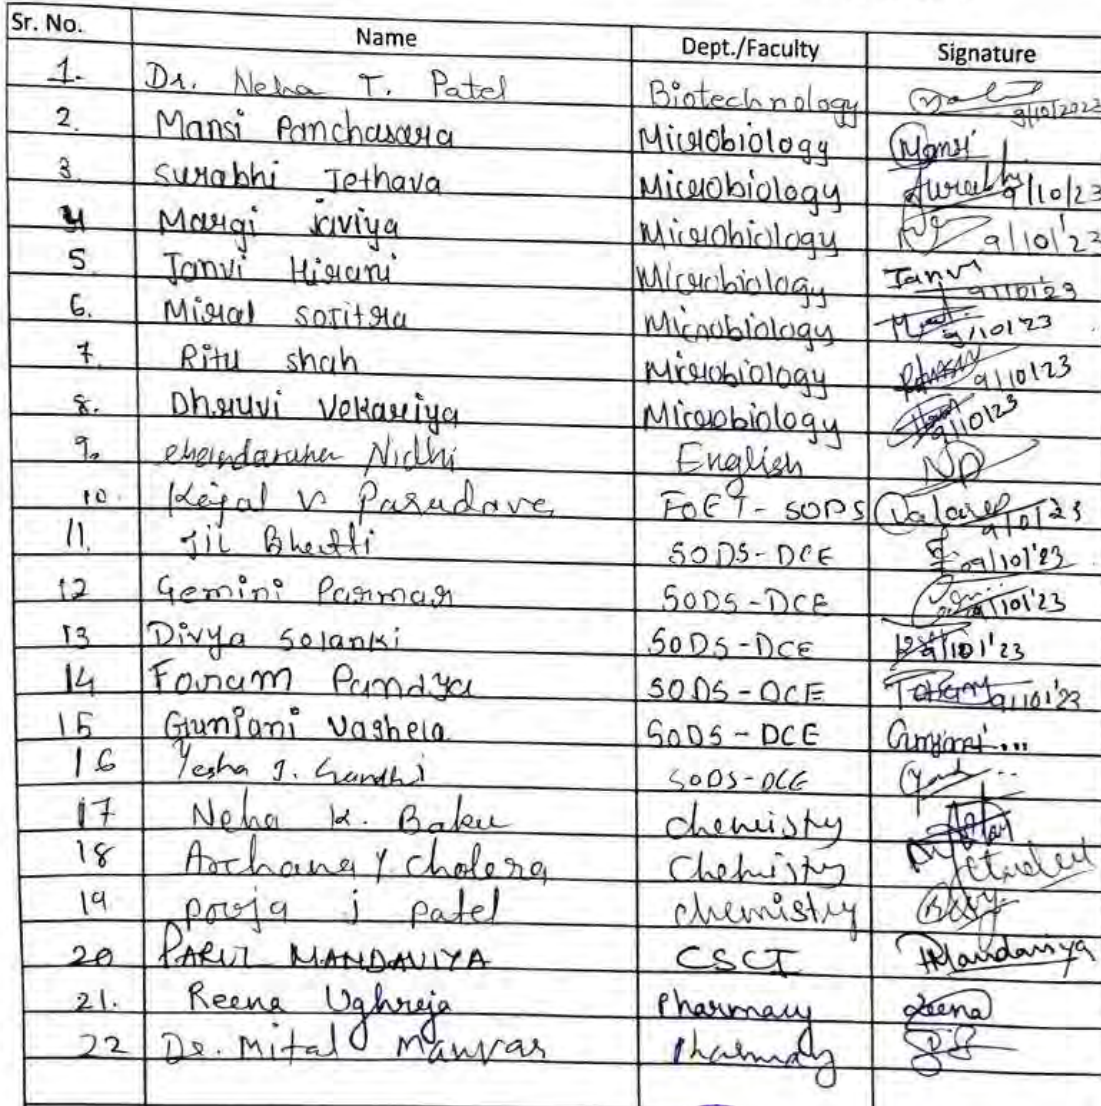 Sr. No. Name Dept./Faculty Signature
1. Dr. Neha T. Patel Biotechnology 9/10/2023
2. Mansi Panchasara Microbiology Mansi
3. Surabhi Jethava Microbiology 9/10/23
4 Margi Javiya Microbiology 9/10/'23
5. Janvi Hirani Microbiology Janvi 9/10/23
6. Miral Sojitra Microbiology 9/10/23
7. Ritu Shah Microbiology 9/10/23
8. Dhruvi Vekariya Microbiology 9/10/23
9. Nidhi English
10. Kejal V. FOET-SODS 9/10/23
11. Jil Bhatti SODS-DCE 09/10/'23
12 Gemini Parmar SODS-DCE 9/10/'23
13 Divya Solanki SODS-DCE 9/10/'23
14 Foram Pandya SODS-DCE 9/10/'23
15 Gunjani Vaghela SODS-DCE Gunjani...
16 Yesha J. Gandhi SODS-DCE
17 Neha K. Baku chemistry
18 Archana Y. Cholera Chemistry
19 pooja j patel chemistry
20 PARUL MANDAVIYA CSCI PMandaviya
21. Reena Ughreja Pharmacy Reena
22 Dr. Mital Manvar Pharmacy